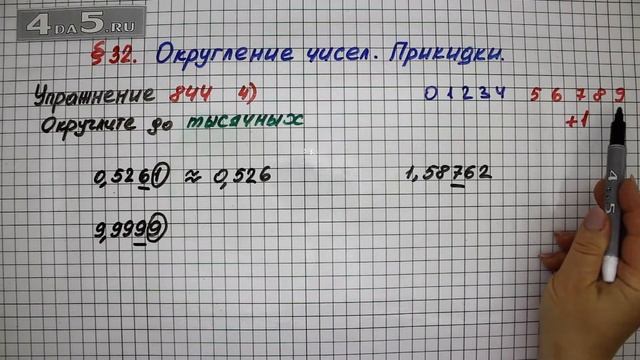 4DA5.RU
§ 32. Округление чисел. Прикидки.
Упражнение 844 4)
0 1 2 3 4 5 6 7 8 9
+1
Округлите до тысячных
0,5261 ≈ 0,526
1,58762
9,9999
4DA5